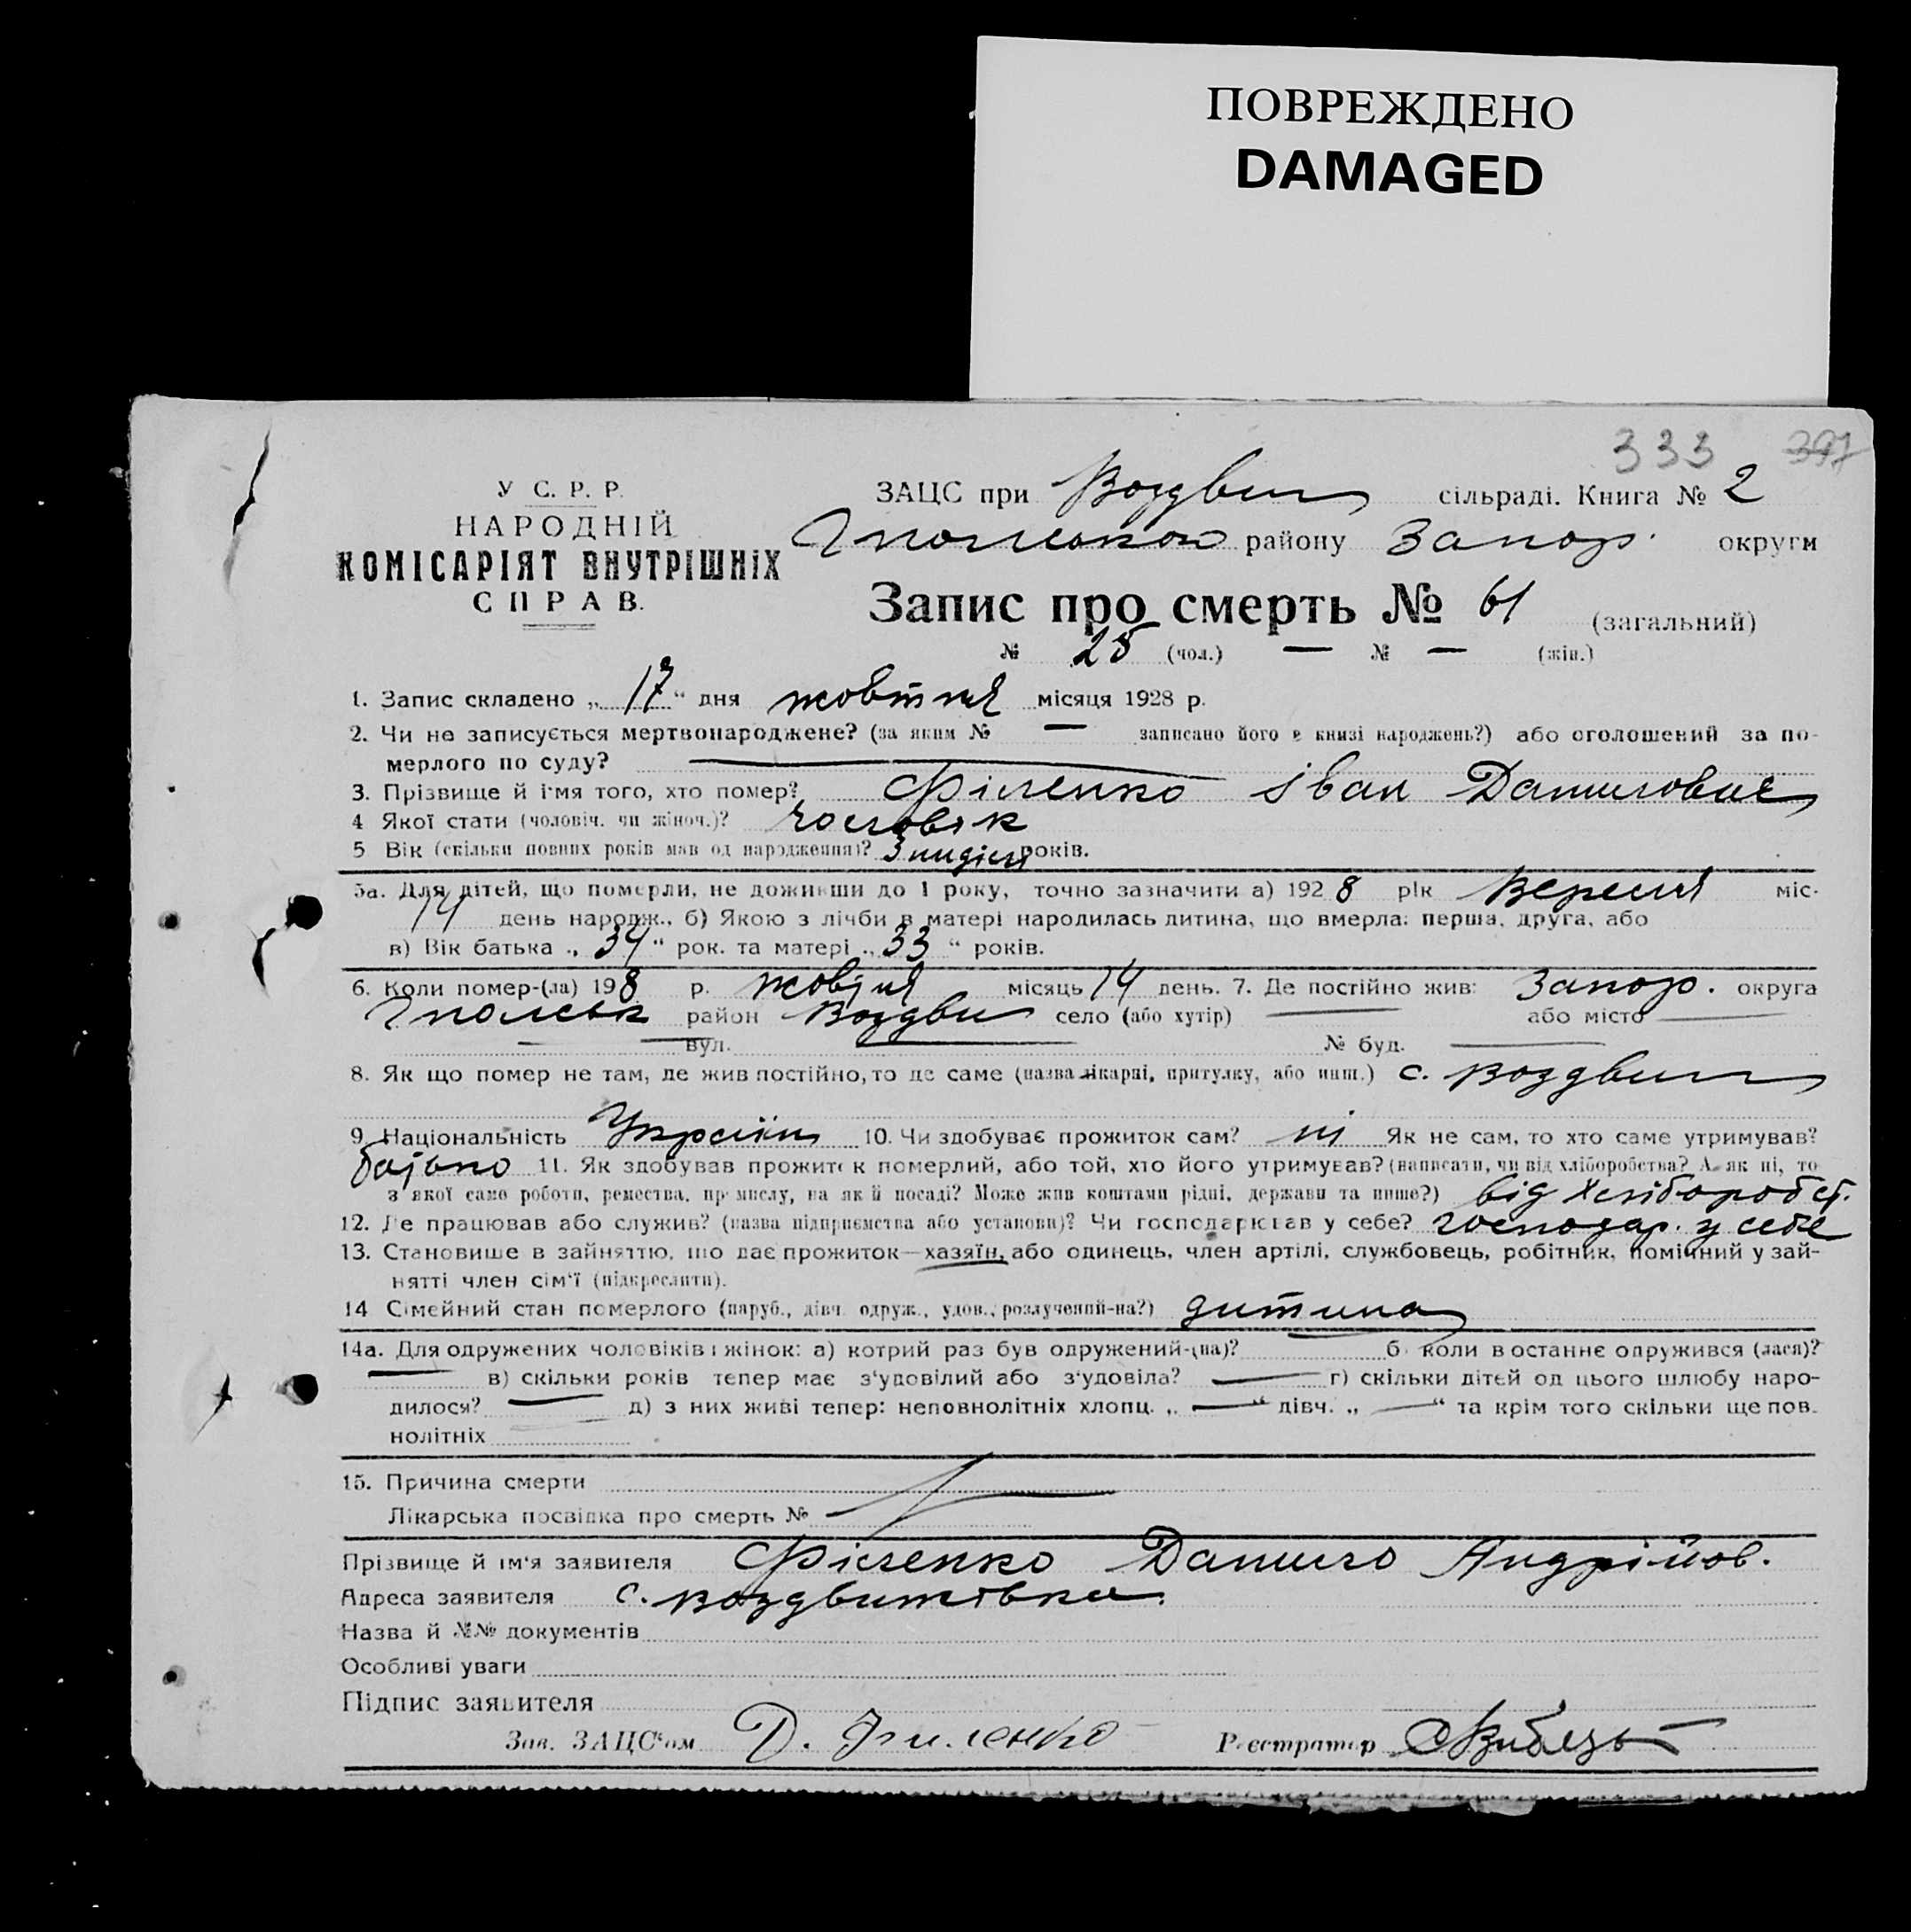 ПОВРЕЖДЕНО
DAMAGED
333 397
У С. Р. Р.
НАРОДНІЙ
КОМІСАРІЯТ ВНУТРІШНІХ
СПРАВ.
ЗАЦС при Воздвиж сільраді. Книга № 2
району Запор. округи
Запис про смерть № 61 (загальний)
№ 25 (чол.) — № — (жін.)
1. Запис складено „ 17 “ дня жовтня місяця 1928 р.
2. Чи не записується мертвонароджене? (за яким № — записано його в книзі народжень?) або оголошений за по-
мерлого по суду? —
3. Прізвище й ім'я того, хто помер? Філенко Іван Данилович
4 Якої стати (чоловіч. чи жіноч.)? чоловік
5 Вік (скільки повних років мав од народження)? 3 неділі років.
5а. Для дітей, що померли, не доживши до 1 року, точно зазначити а) 1928 рік Вересня міс.
14 день народж., б) Якою з лічби в матері народилась дитина, що вмерла: перша, друга, або
в) Вік батька „ 34 “ рок. та матері „ 33 “ років.
6. Коли помер-(ла) 198 р. жовтня місяць 14 день. 7. Де постійно жив: Запор. округа
район Воздви село (або хутір) — або місто —
— вул. — № буд. —
8. Як що помер не там, де жив постійно, то де саме (назва лікарні, притулку, або инш.) с. Воздвиж
9. Національність Україн 10. Чи здобуває прожиток сам? ні Як не сам, то хто саме утримував?
батько 11. Як здобував прожиток померлий, або той, хто його утримував? (написати, чи від хліборобства? А як ні, то
з якої само роботи, ремества, промислу, на якій посаді? Може жив коштами рідні, держави та инше?) від Хліборобст.
12. Де працював або служив? (назва підприємства або установи)? Чи господарював у себе? господар. у себе
13. Становише в зайняттю, що дає прожиток—хазяїн, або одинець, член артілі, службовець, робітник, помічний у зай-
нятті член сім'ї (підкреслити).
14 Сімейний стан померлого (паруб., дівч. одруж., удов., розлучений-на?) дитина
14а. Для одружених чоловіків і жінок: а) котрий раз був одружений-(на)? — б коли в останнє одружився (лася)?
— в) скільки років тепер має з'удовілий або з'удовіла? — г) скільки дітей од цього шлюбу наро-
дилося? — д) з них живі тепер: неповнолітніх хлопц. „ — “ дівч. „ — “ та крім того скільки ще пов.
нолітніх
15. Причина смерти
Лікарська посвідка про смерть № —
Прізвище й ім'я заявителя Філенко Данило Андрійов.
Адреса заявителя с. Воздвижівка.
Назва й №№ документів
Особливі уваги
Підпис заявителя
Зав. ЗАЦС'ом Д. Филенко Реєстратор